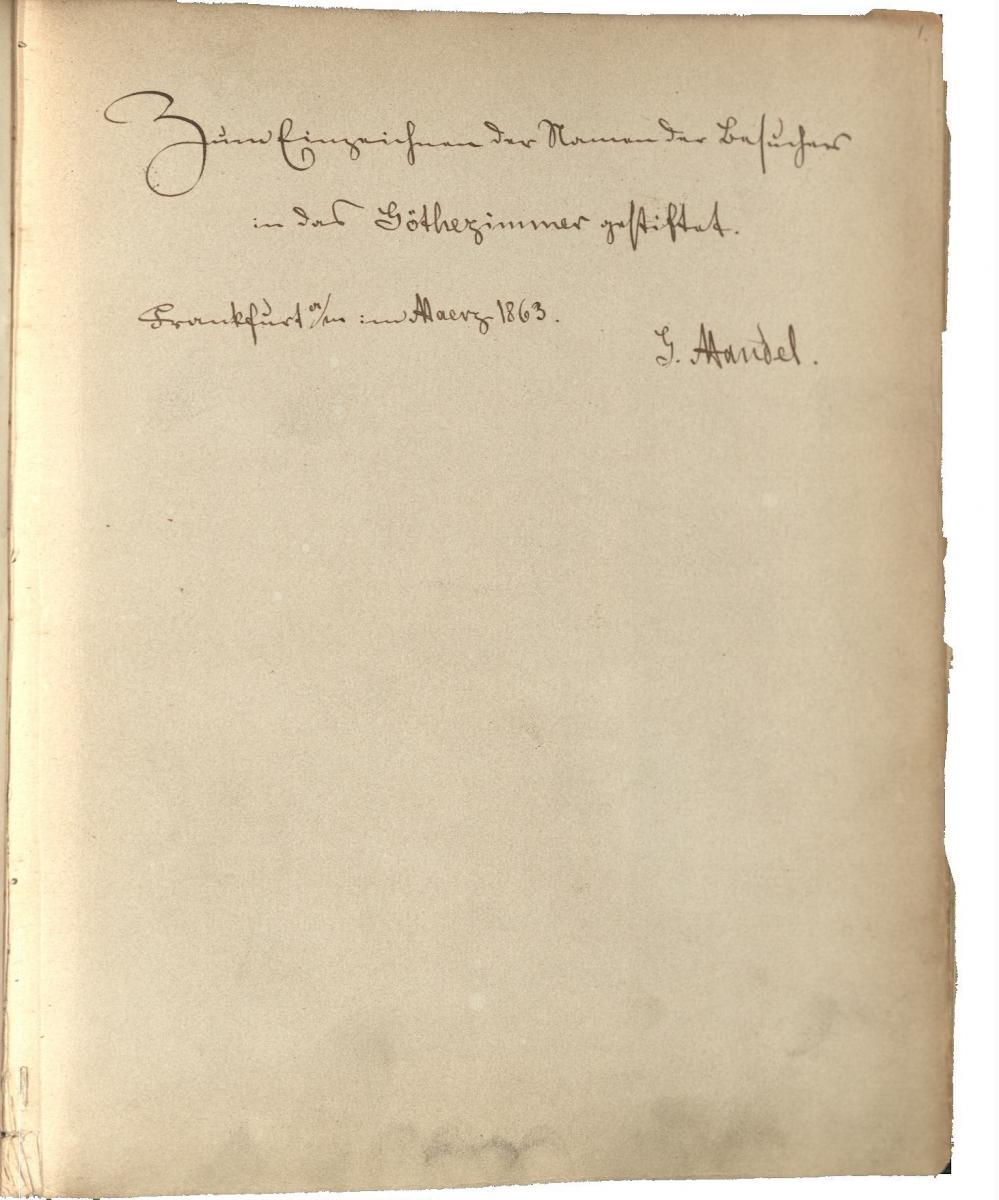 1.
Zum Einzeichnen der Namen der Besucher
in das Göthezimmer gestiftet.
Frankfurt a/m im Maerz 1863.
G. Mandel.